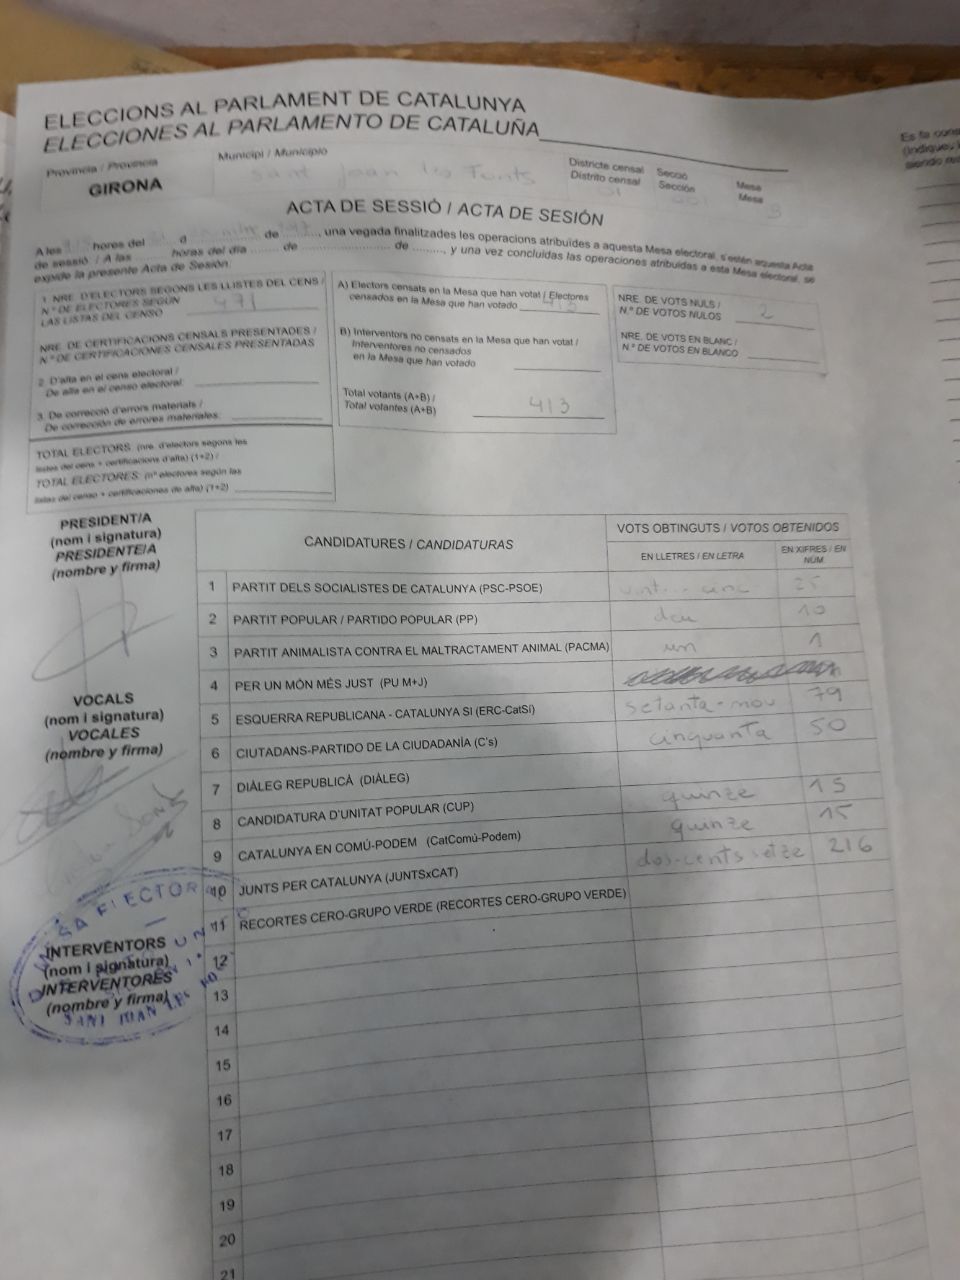 ELECCIONS AL PARLAMENT DE CATALUNYA
ELECCIONES AL PARLAMENTO DE CATALUÑA
Es fa cons
(Indiqueu
siendo req
Província / Provincia
GIRONA
Municipi / Municipio
Sant Joan les Fonts
Districte censal
Distrito censal
01
Secció
Sección
001
Mesa
Mesa
B
ACTA DE SESSIÓ / ACTA DE SESIÓN
A les hores del d de , una vegada finalitzades les operacions atribuïdes a aquesta Mesa electoral, s'estén aquesta Acta
de sessió. / A las ........ horas del día ........ de ........ de ........, y una vez concluidas las operaciones atribuidas a esta Mesa electoral, se
expide la presente Acta de Sesión.
1. NRE. D'ELECTORS SEGONS LES LLISTES DEL CENS /
N.º DE ELECTORES SEGÚN
LAS LISTAS DEL CENSO
471
NRE. DE CERTIFICACIONS CENSALS PRESENTADES /
N.º DE CERTIFICACIONES CENSALES PRESENTADAS
2. D'alta en el cens electoral /
De alta en el censo electoral:
3. De correcció d'errors materials /
De corrección de errores materiales:
TOTAL ELECTORS: (nre. d'electors segons les
llistes del cens + certificacions d'alta) (1+2) /
TOTAL ELECTORES: (nº electores según las
listas del censo + certificaciones de alta) (1+2)
A) Electors censats en la Mesa que han votat / Electores
censados en la Mesa que han votado 413
B) Interventors no censats en la Mesa que han votat /
Interventores no censados
en la Mesa que han votado
Total votants (A+B) /
Total votantes (A+B)
413
NRE. DE VOTS NULS /
N.º DE VOTOS NULOS
2
NRE. DE VOTS EN BLANC /
N.º DE VOTOS EN BLANCO
PRESIDENT/A
(nom i signatura)
PRESIDENTE/A
(nombre y firma)
VOCALS
(nom i signatura)
VOCALES
(nombre y firma)
INTERVENTORS
(nom i signatura)
INTERVENTORES
(nombre y firma)
CANDIDATURES / CANDIDATURAS
VOTS OBTINGUTS / VOTOS OBTENIDOS
EN LLETRES / EN LETRA
EN XIFRES / EN NÚM.
1 PARTIT DELS SOCIALISTES DE CATALUNYA (PSC-PSOE) vint-i-cinc 25
2 PARTIT POPULAR / PARTIDO POPULAR (PP) deu 10
3 PARTIT ANIMALISTA CONTRA EL MALTRACTAMENT ANIMAL (PACMA) un 1
4 PER UN MÓN MÉS JUST (PU M+J)
5 ESQUERRA REPUBLICANA - CATALUNYA SI (ERC-CatSí) setanta-nou 79
6 CIUTADANS-PARTIDO DE LA CIUDADANÍA (C's) cinquanta 50
7 DIÀLEG REPUBLICÀ (DIÀLEG)
8 CANDIDATURA D'UNITAT POPULAR (CUP) quinze 15
9 CATALUNYA EN COMÚ-PODEM (CatComú-Podem) quinze 15
10 JUNTS PER CATALUNYA (JUNTSxCAT) dos-cents setze 216
11 RECORTES CERO-GRUPO VERDE (RECORTES CERO-GRUPO VERDE)
12
13
14
15
16
17
18
19
20
21